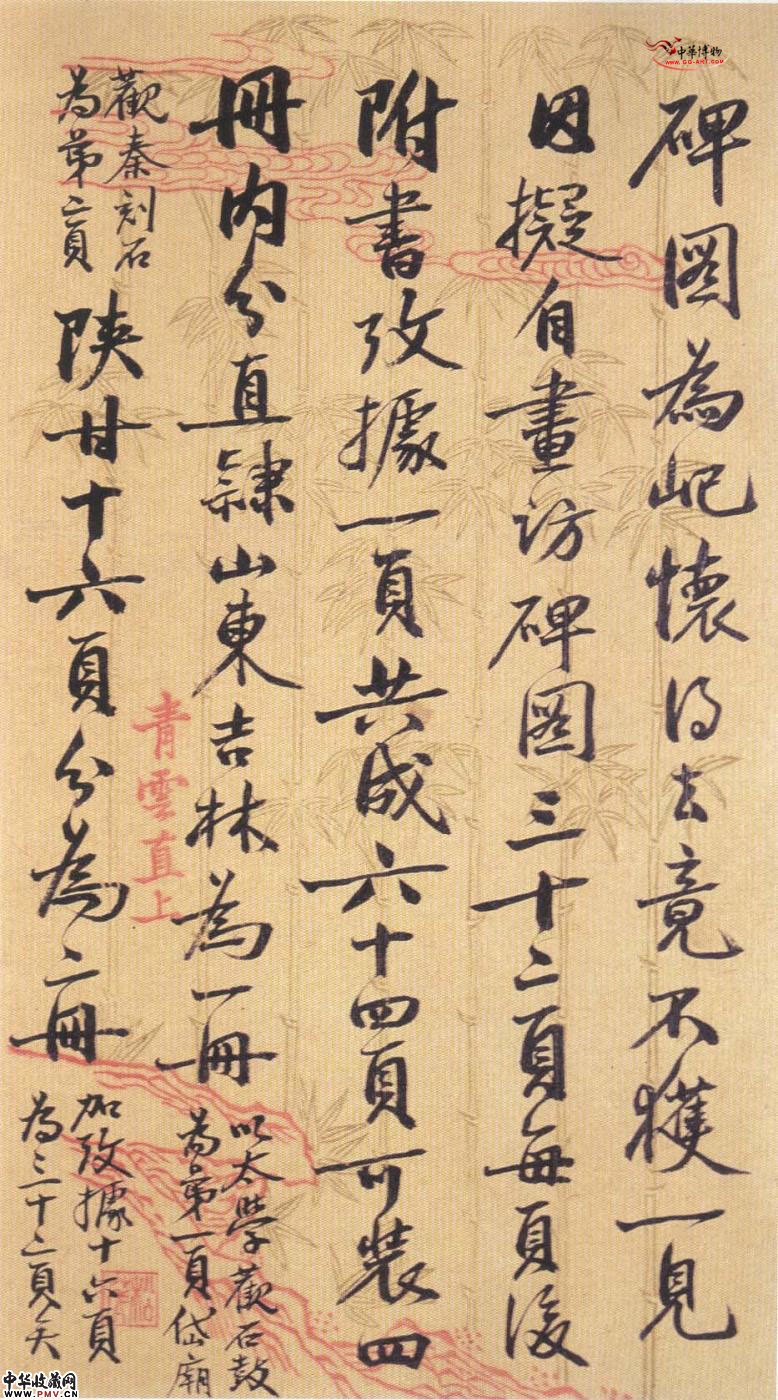 碑圖為屺懷得去竟不獲一見
因擬自畫訪碑圖三十二頁每頁後
附書攷據一頁共成六十四頁可裝四
冊內分直隸山東吉林為一冊
以太學觀石鼓
為第一頁岱廟
觀秦刻石
為第二頁
陝甘十六頁分為二冊
加攷據十六頁
為三十二頁矣
青雲直上
中華博物
www.gg-art.com
中华收藏网
www.PMV.CN